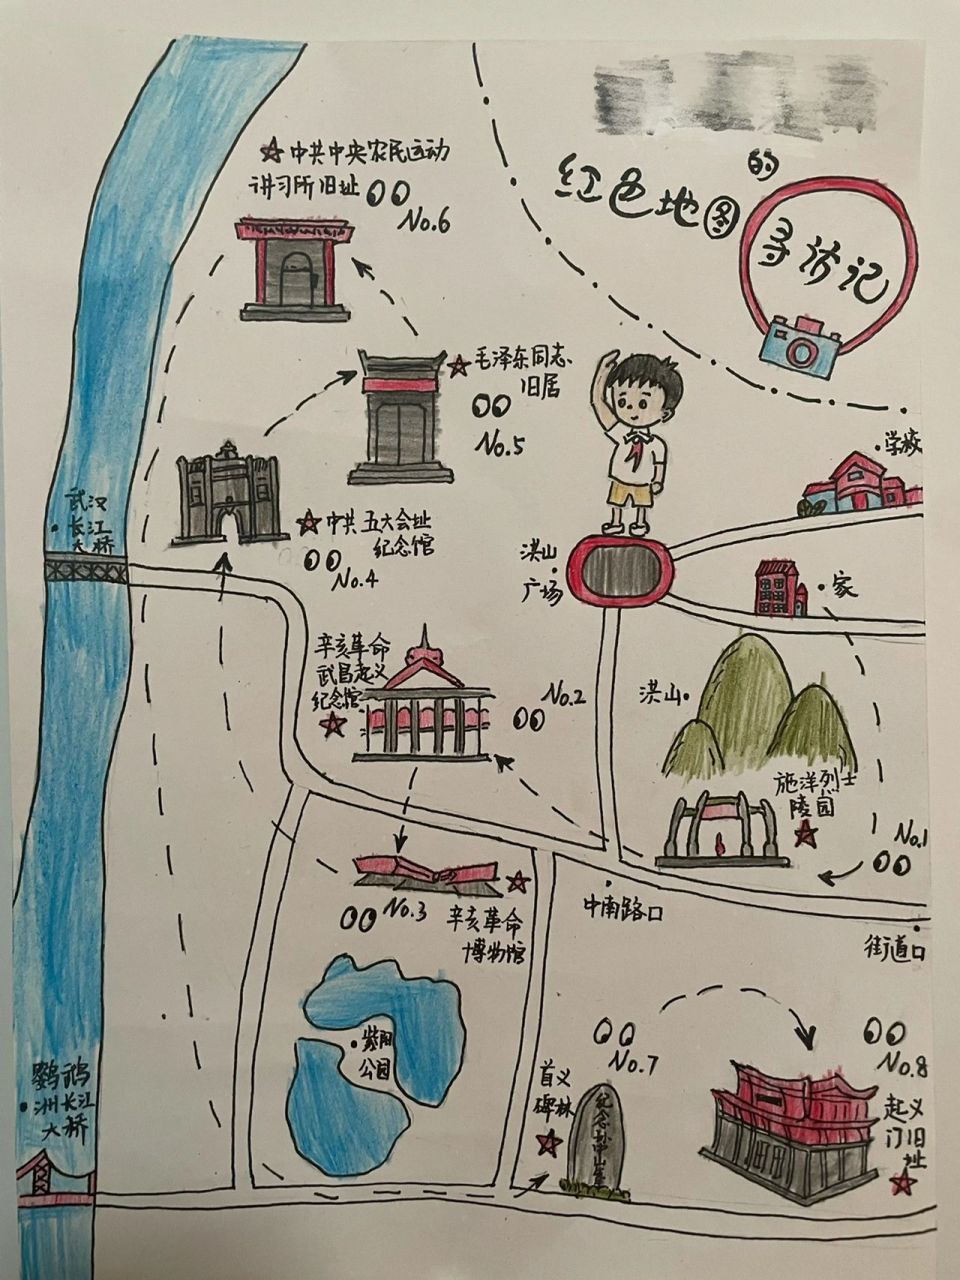 的
红色地图
寻访记
中共中央农民运动
讲习所旧址
No.6
毛泽东同志
旧居
No.5
学校
武汉
长江
大桥
中共五大会址
纪念馆
No.4
洪山
广场
家
辛亥革命
武昌起义
纪念馆
No.2
洪山
施洋烈士
陵园
No.1
No.3
辛亥革命
博物馆
中南路口
街道口
紫阳
公园
鹦鹉
洲长江
大桥
No.7
首义
碑林
纪念孙中山
No.8
起义
门旧
址